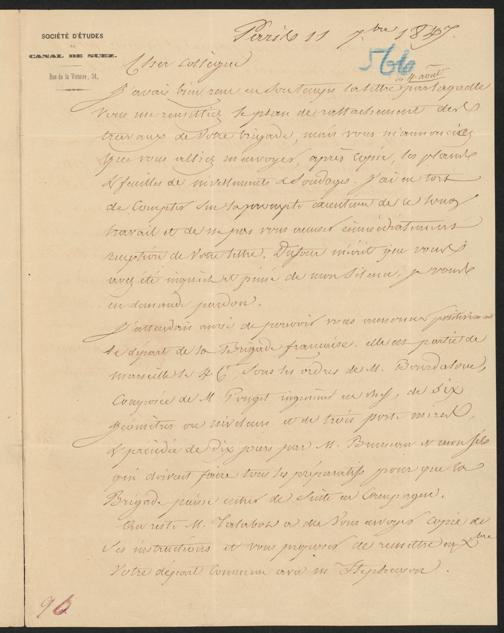 SOCIÉTÉ D'ÉTUDES
DU
CANAL DE SUEZ.
Rue de la Victoire, 34.
Paris 11 7bre 1847.
566
Cher Collègue
du 4 août
J'avais bien reçu en son temps la lettre par laquelle
vous me remettiez le plan de rattachement des
travaux de votre brigade, mais vous m'annonciez
que vous alliez m'envoyer, après copie, les plans
& feuilles de nivellements & sondages. J'ai eu tort
de compter sur la prompte exécution de ce long
travail et de ne pas vous accuser immédiatement
réception de votre lettre. Dufour m'écrit que vous
avez été inquiet et peiné de mon silence, je vous
en demande pardon.
J'attendais aussi de pouvoir vous annoncer
le départ de la Brigade française. elle est partie de
Marseille le 4 Ct. sous les ordres de M. Bourdaloue,
composée de M. ingénieur en chef, de dix
géomètres ou niveleurs et de trois porte mires,
& précédée de dix jours par M. Bruneau & mon fils
qui doivent faire tous les préparatifs pour que la
Brigade puisse entrer de suite en Campagne.
Au reste M. Talabot a dû vous envoyer copie de
ses instructions et vous proposer de remettre en Xbre
votre départ commun avec M. Stephenson.
96